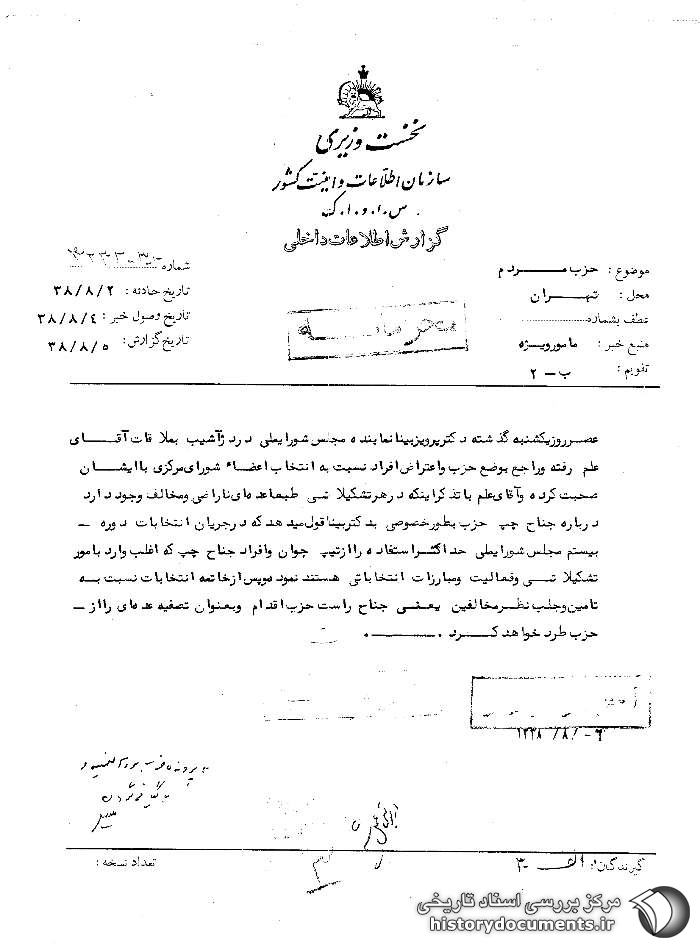 نخست وزیری
سازمان اطلاعات و امنیت کشور
س.ا.و.ا.ک
گزارش اطلاعات داخلی
موضوع : حزب مردم
محل : تهران
عطف بشماره
منبع خبر : مامور ویژه
تقویم : ب - ۲
شماره
تاریخ حادثه : ۳۸/۸/۲
تاریخ وصول خبر : ۳۸/۸/۴
تاریخ گزارش : ۳۸/۸/۵
محرمانه
عصر روز یکشنبه گذشته دکتر پرویز بینا نماینده مجلس شورایملی در دزآشیب بملاقات آقای
علم رفته و راجع بوضع حزب و اعتراض افراد نسبت به انتخاب اعضاء شورای مرکزی با ایشان
صحبت کرده و آقای علم با تذکر اینکه در هر تشکیلاتی طبعا عده‌ای ناراضی و مخالف وجود دارد
درباره جناح چپ حزب بطور خصوصی بدکتر بینا قول میدهد که در جریان انتخابات دوره -
بیستم مجلس شورایملی حداکثر استفاده را از تیپ جوان و افراد جناح چپ که اغلب وارد بامور
تشکیلاتی و فعالیت و مبارزات انتخاباتی هستند نموده و پس از خاتمه انتخابات نسبت به
تامین و جلب نظر مخالفین یعنی جناح راست حزب اقدام و بعنوان تصفیه عده‌ای را از -
حزب طرد خواهد کرد .
۱۳۳۸/۸/-۶
گیرندگان : الف - ۳
تعداد نسخه :
مرکز بررسی اسناد تاریخی
historydocuments.ir